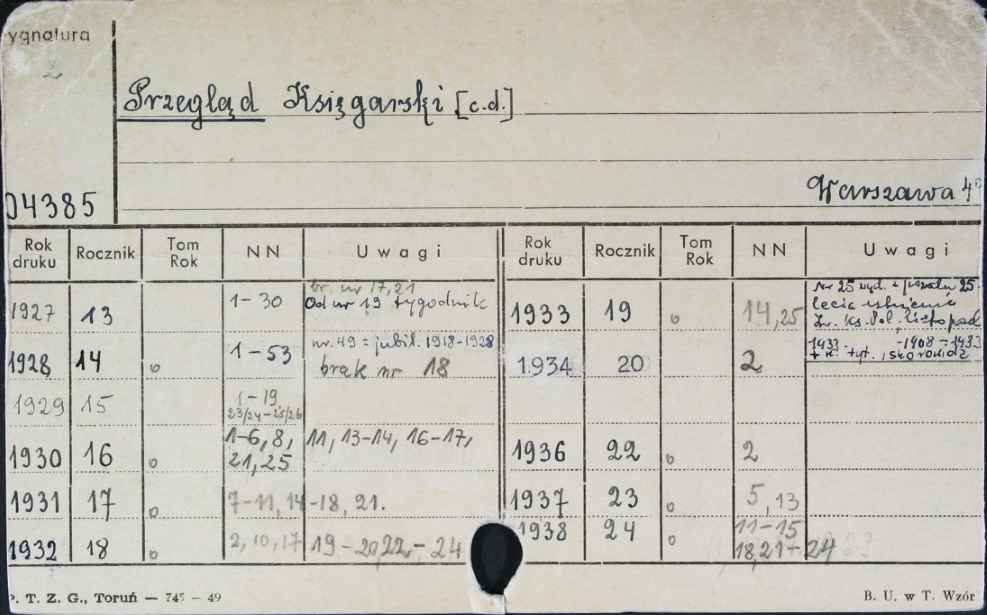 ygnatura
Przegląd Księgarski [c.d.]
Warszawa 4°
04385
Rok druku Rocznik Tom Rok NN Uwagi
1927 13 1-30 br. nr 17, 21
Od nr 19 tygodnik
1928 14 o 1-53 nr. 49 = jubil. 1918-1928
brak nr 18
1929 15 1-19
23/24-25/26
1930 16 o 1-6, 8, 11, 13-14, 16-17,
21, 25
1931 17 o 7-11, 14-18, 21.
1932 18 o 2, 10, 17 19-20, 22-24
Rok druku Rocznik Tom Rok NN Uwagi
1933 19 o 14, 25 Nr 25 wyd. z 25-
lecia istnienia
Zw. Ks. Pol. Listopad
1933. -1908-1933
+ k. tyt., skorowidz
1934 20 2
1936 22 o 2
1937 23 o 5, 13
1938 24 o 11-15
18, 21-24
P. T. Z. G., Toruń — 745 - 49
B. U. w T. Wzór